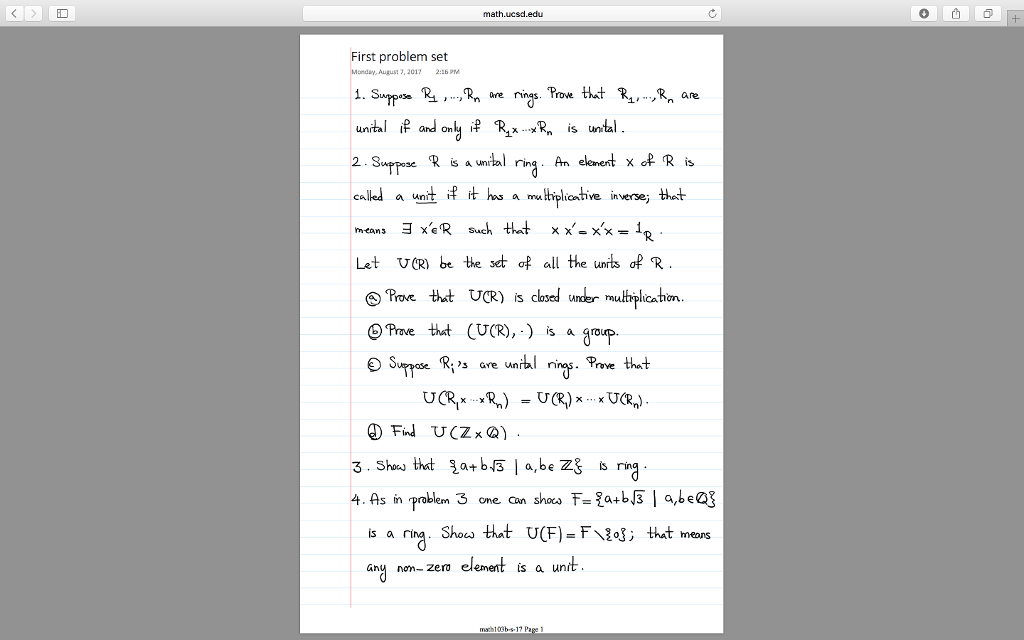 math.ucsd.edu
First problem set
Monday, August 7, 2017 2:16 PM
1. Suppose R₁,...,Rₙ are rings. Prove that R₁,...,Rₙ are
unital if and only if R₁×...×Rₙ is unital.
2. Suppose R is a unital ring. An element x of R is
called a unit if it has a multiplicative inverse; that
means ∃ x'∈R such that x x' = x'x = 1_R.
Let U(R) be the set of all the units of R.
ⓐ Prove that U(R) is closed under multiplication.
ⓑ Prove that (U(R), ·) is a group.
ⓒ Suppose Rᵢ's are unital rings. Prove that
U(R₁×...×Rₙ) = U(R₁)×...×U(Rₙ).
ⓓ Find U(ℤ×ℚ).
3. Show that {a+b√3 | a,b∈ℤ} is ring.
4. As in problem 3 one can show F={a+b√3 | a,b∈ℚ}
is a ring. Show that U(F)=F\{0}; that means
any non-zero element is a unit.
math103b-s-17 Page 1